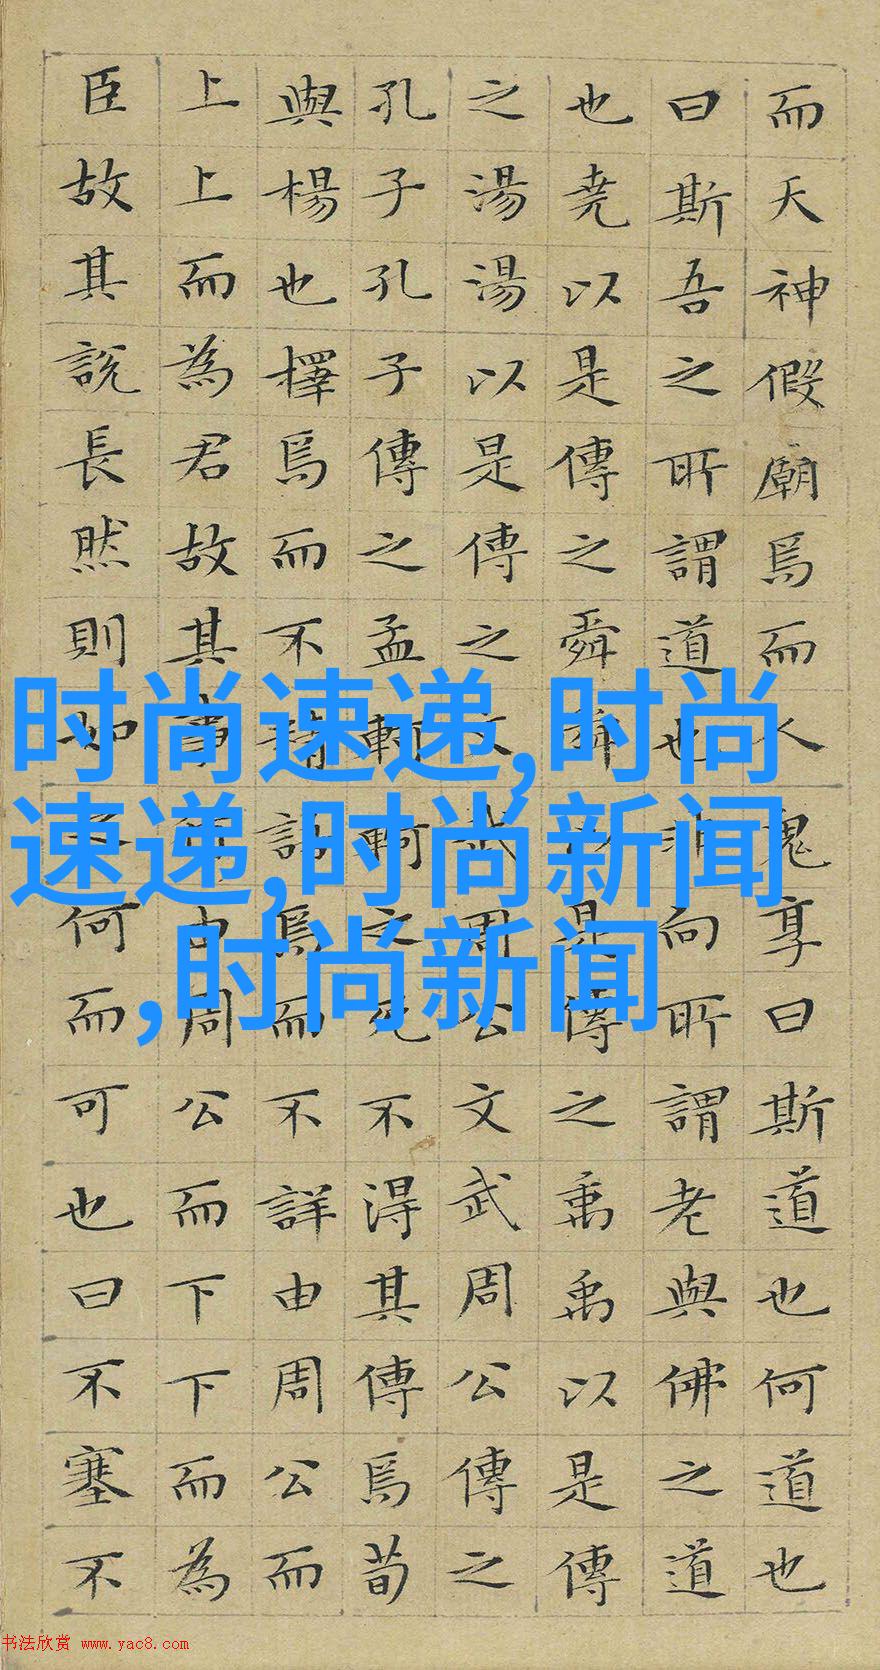 而天神假廟焉而人鬼享曰斯道也何道也
曰斯吾之所謂道也非向所謂老與佛之道
也堯以是傳之舜舜以是傳之禹禹以是傳
之湯湯以是傳之文武周公文武周公傳之
孔子孔子傳之孟軻軻之死不得其傳焉荀
與楊也擇焉而不精語焉而不詳由周公而
上上而為君故其事行由周公而下下而為
臣故其說長然則如之何而可也曰不塞不
时尚速递,时尚
速递,时尚新闻
,时尚新闻
书法欣赏 www.yac8.com